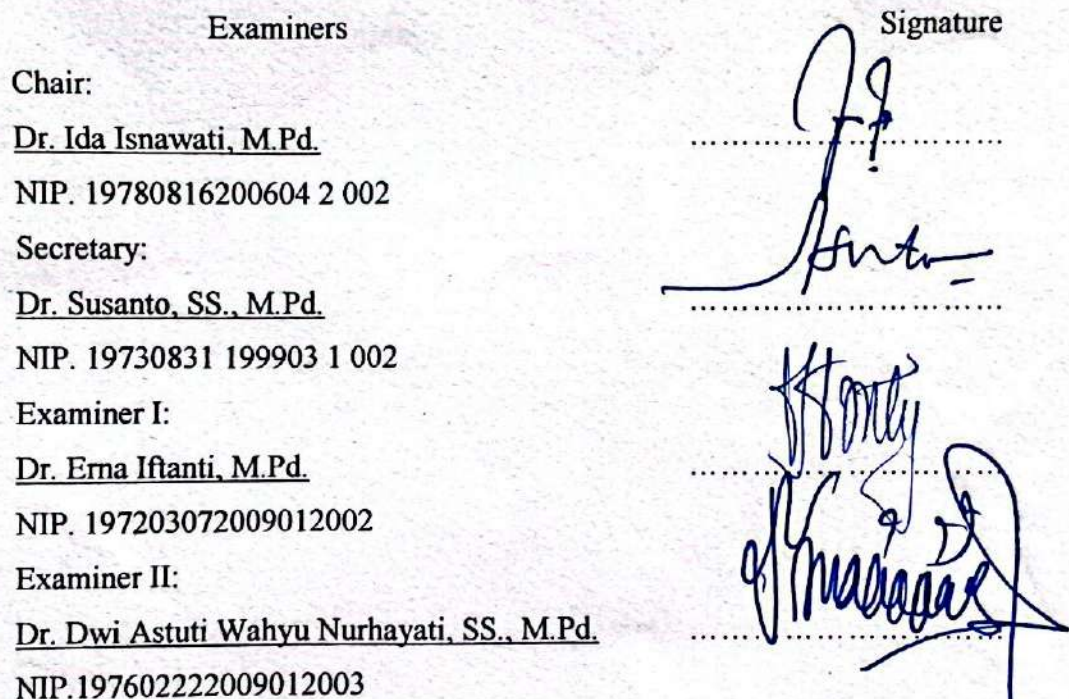 Examiners Signature
Chair:
Dr. Ida Isnawati, M.Pd. ..............................
NIP. 19780816200604 2 002
Secretary:
Dr. Susanto, SS., M.Pd. ..............................
NIP. 19730831 199903 1 002
Examiner I:
Dr. Erna Iftanti, M.Pd. ..............................
NIP. 197203072009012002
Examiner II:
Dr. Dwi Astuti Wahyu Nurhayati, SS., M.Pd. ..............................
NIP.197602222009012003